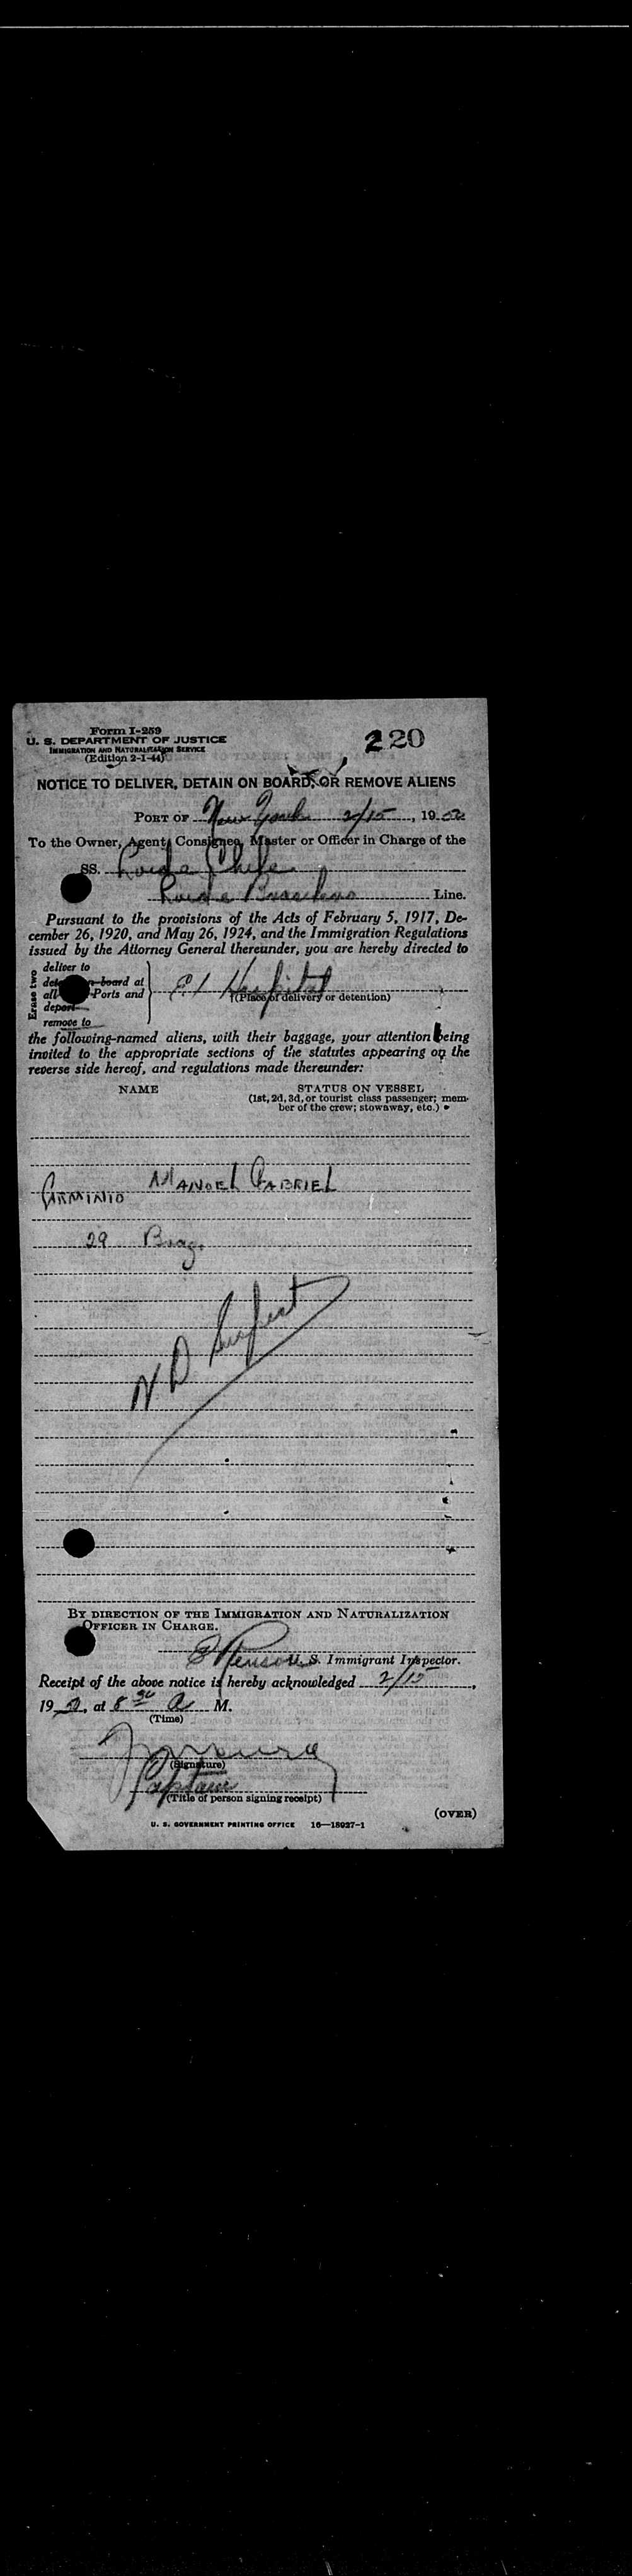 Form I-259
U. S. DEPARTMENT OF JUSTICE
IMMIGRATION AND NATURALIZATION SERVICE
(Edition 2-1-44)
220
NOTICE TO DELIVER, DETAIN ON BOARD, OR REMOVE ALIENS
PORT OF New York 2/15, 1952
To the Owner, Agent, Consignee, Master or Officer in Charge of the
SS. Loide Chile
Line.
Pursuant to the provisions of the Acts of February 5, 1917, De-
cember 26, 1920, and May 26, 1924, and the Immigration Regulations
issued by the Attorney General thereunder, you are hereby directed to
Erase two
deliver to
board at
all Ports and
deport
remove to
EI Hospital
(Place of delivery or detention)
the following-named aliens, with their baggage, your attention being
invited to the appropriate sections of the statutes appearing on the
reverse side hereof, and regulations made thereunder:
NAME STATUS ON VESSEL
(1st, 2d, 3d, or tourist class passenger; mem-
ber of the crew; stowaway, etc.)
ARMINIO MANOEL GABRIEL
29 Braz.
N D
BY DIRECTION OF THE IMMIGRATION AND NATURALIZATION
OFFICER IN CHARGE.
U. S. Immigrant Inspector.
Receipt of the above notice is hereby acknowledged 2/15,
1952, at 8 30 A M.
(Time)
(Signature)
Captain
(Title of person signing receipt)
(OVER)
U. S. GOVERNMENT PRINTING OFFICE 16—18027-1